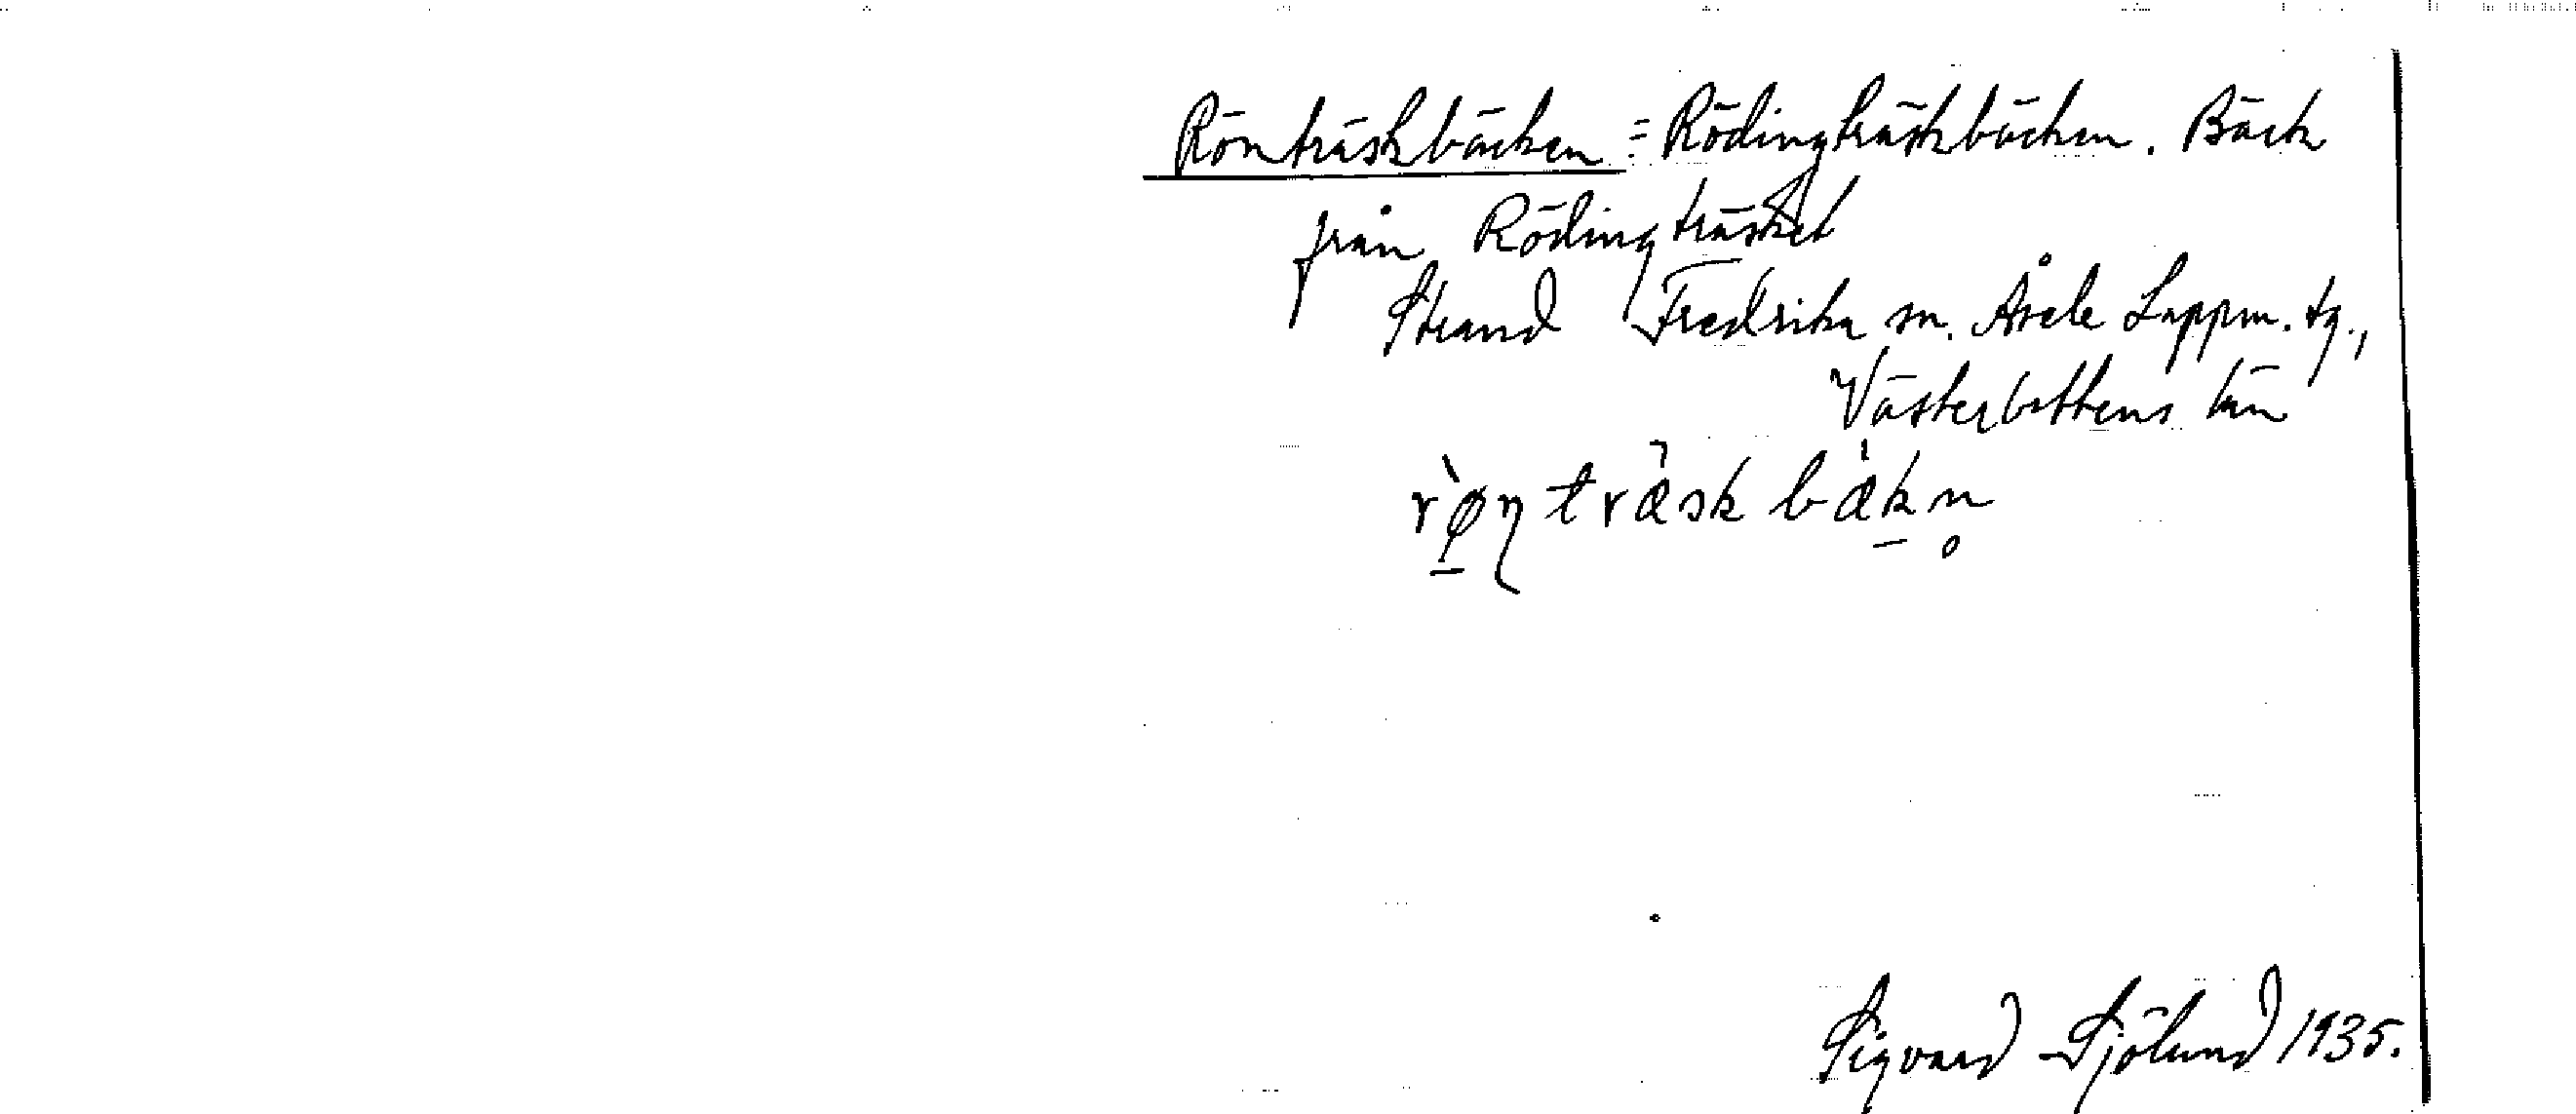 Rönträskbäcken = Rödingträskbäcken. Bäck
från Rödingträsket
Strand Fredrika sn. Åsele Lappm. tg.,
Västerbottens län
r\`ø̠ŋtræskbæk̠n̥
Sigvard Sjölund 1935.